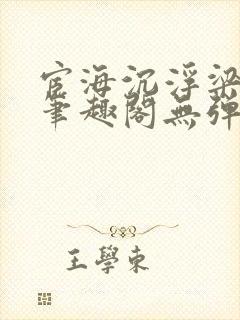 宦海沉浮梁
筆趣閣無彈
王學東